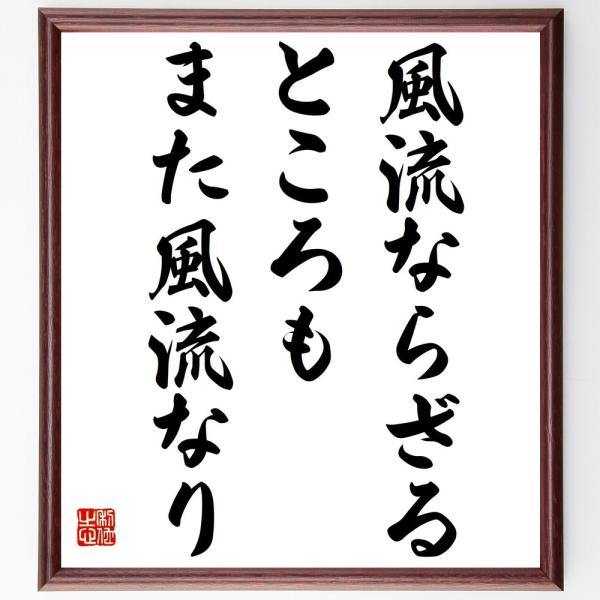 風流ならざる
ところも
また風流なり